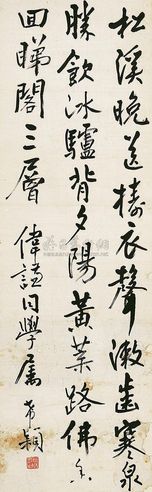 松溪晚送擣衣聲漱齒寒泉
勝飲冰驢背夕陽黃葉路佛香
回睇閣三層 偉謹同學屬 希穎